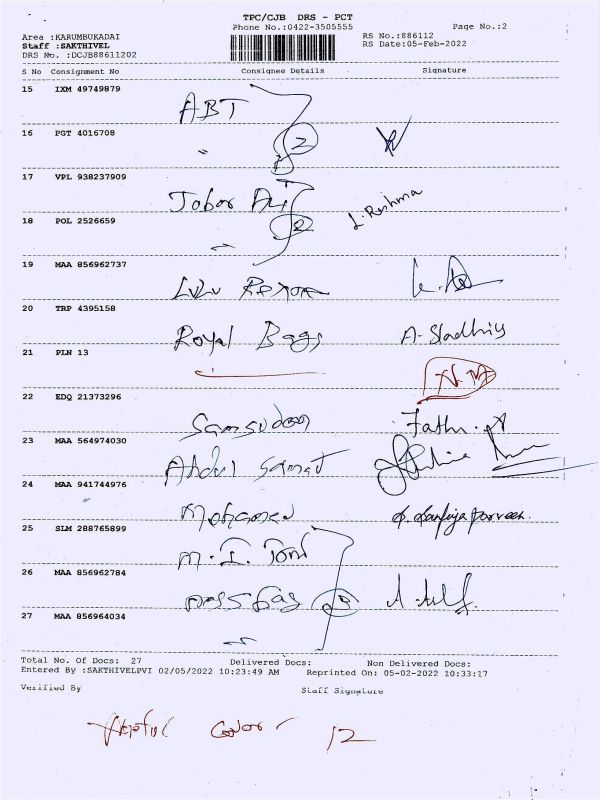 TPC/CJB DRS - PCT
Phone No.:0422-3505555 Page No.:2
Area :KARUMBUKADAI RS No.:886112
Staff :SAKTHIVEL RS Date:05-Feb-2022
DRS No. :DCJB88611202
S No Consignment No Consignee Details Signature
15 IXM 49749879
ABT
16 PGT 4016708
" 2
17 VPL 938237909
Jabar Ali L. Reshma
18 POL 2526659
2
19 MAA 856962737
Lulu
20 TRP 4395158
Royal Bags
21 PLN 13
22 EDQ 21373296
Samsudeen
23 MAA 564974030
Abdul Samat
24 MAA 941744976
Mohamed
25 SLM 288765899
M. I.
26 MAA 856962784
27 MAA 856964034
Total No. Of Docs: 27 Delivered Docs: Non Delivered Docs:
Entered By :SAKTHIVELPVI 02/05/2022 10:23:49 AM Reprinted On: 05-02-2022 10:33:17
Verified By Staff Signature
cover 12